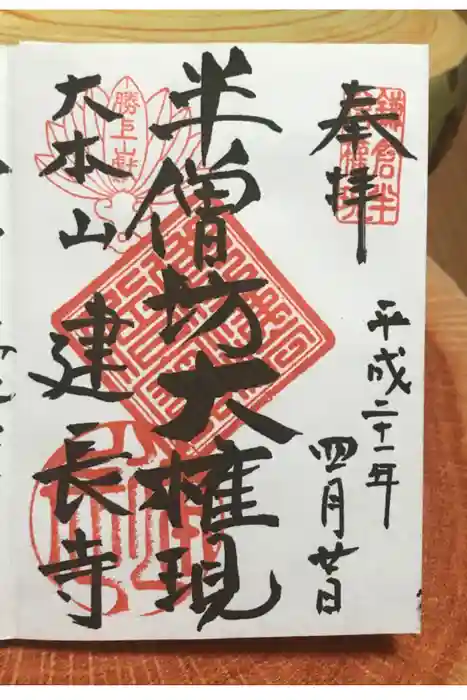 奉拝
平成二十一年
四月廿日
半僧坊大権現
大本山建長寺
勝上山獻